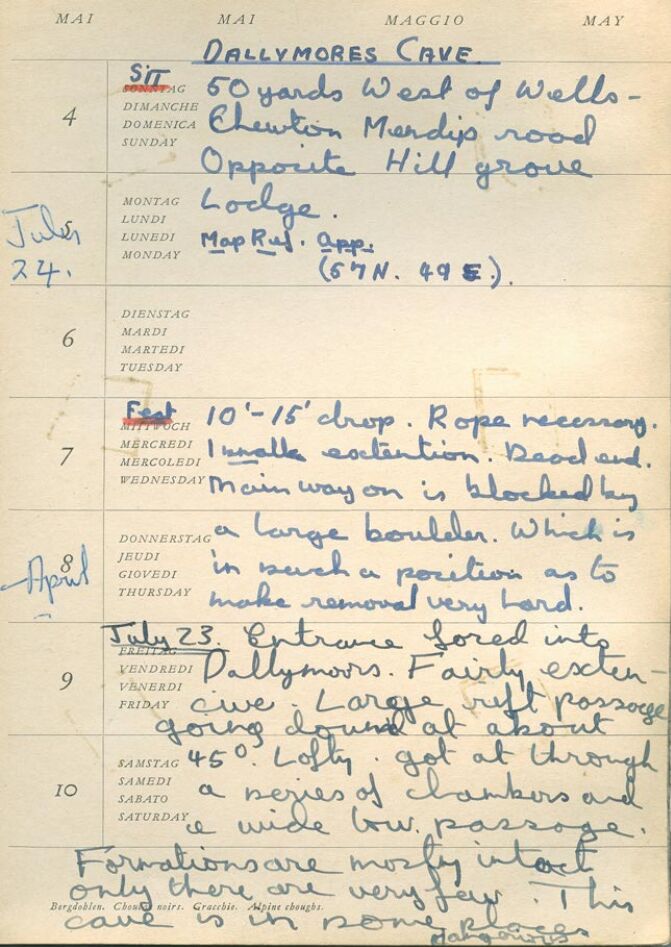 MAI MAI MAGGIO MAY
DALLYMORES CAVE.
Sit 50 yards West of Wells -
4 SONNTAG DIMANCHE DOMENICA SUNDAY
Chewton Mendip road
Opposite Hill grove
Lodge.
5 MONTAG LUNDI LUNEDI MONDAY
July
24.
Map Ref. app.
(57N. 49E.).
6 DIENSTAG MARDI MARTEDI TUESDAY
Feat 10'-15' drop. Rope necessary.
7 MITTWOCH MERCREDI MERCOLEDI WEDNESDAY
1 small extention. Dead end.
Main way on is blocked by
8 DONNERSTAG JEUDI GIOVEDI THURSDAY
April
a large boulder. Which is
in such a position as to
make removal very hard.
July 23. Entrance forced into
9 FREITAG VENDREDI VENERDI FRIDAY
Dallymoors. Fairly exten-
cive. Large rift passage
going down at about
10 SAMSTAG SAMEDI SABATO SATURDAY
45°. Lofty. got at through
a series of chambers and
a wide low passage.
Formations are mostly intact
only there are very few. This
Bergdohlen. Choucas noirs. Gracchie. Alpine choughs.
cave is in some places
dangerous